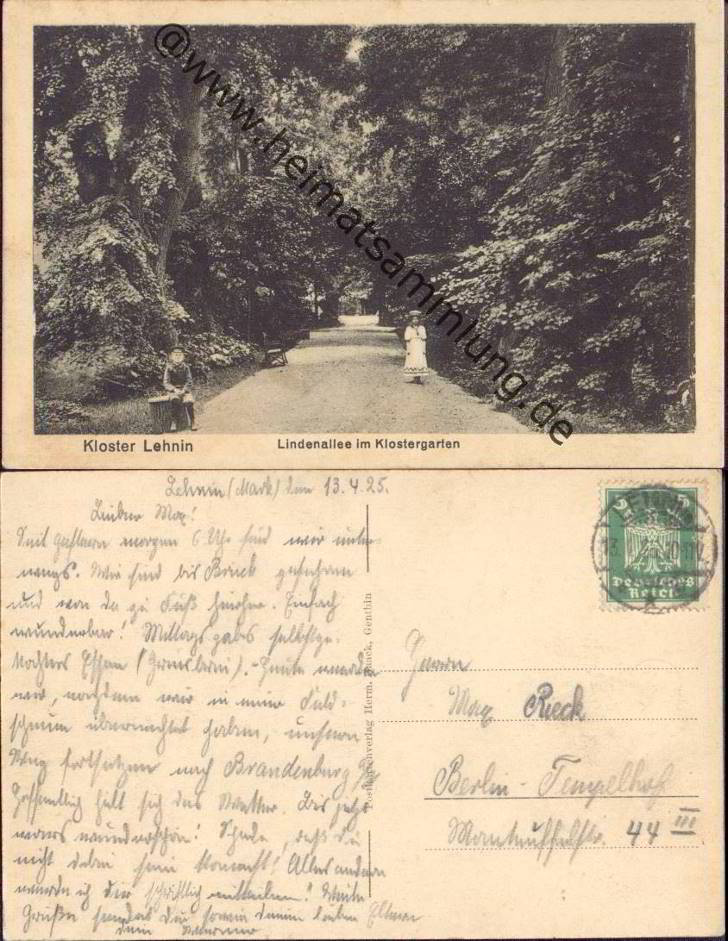 @www.heimatsammlung.de
Kloster Lehnin
Lindenallee im Klostergarten
Lehnin (Mark) den 13.4.25.
Lieber Max!
Seit gestern morgen 6 Uhr sind wir unter-
wegs. Wir sind bis Brück gefahren
und von da zu Fuß hierher. Einfach
wunderbar! Mittags gabs selbstge-
kochtes Essen (Griesbrei). Heute werden
wir, nachdem wir in einer Feld-
scheune übernachtet haben, unseren
Weg fortsetzen nach Brandenburg
Hoffentlich hält sich das Wetter. Bis jetzt
wars wunderschön! Schade, daß Du
nicht dabei sein konntest! Alles andere
werde ich Dir schriftlich mitteilen! Viele
Grüße sendet Dir sowie Deinen lieben Eltern
Dein
Postkartenverlag Herm. Genthin
LEHNIN
5 5
Deutsches
Reich
Herrn
Max Rieck
Berlin-Tempelhof
Manteuffelstr. 44 III